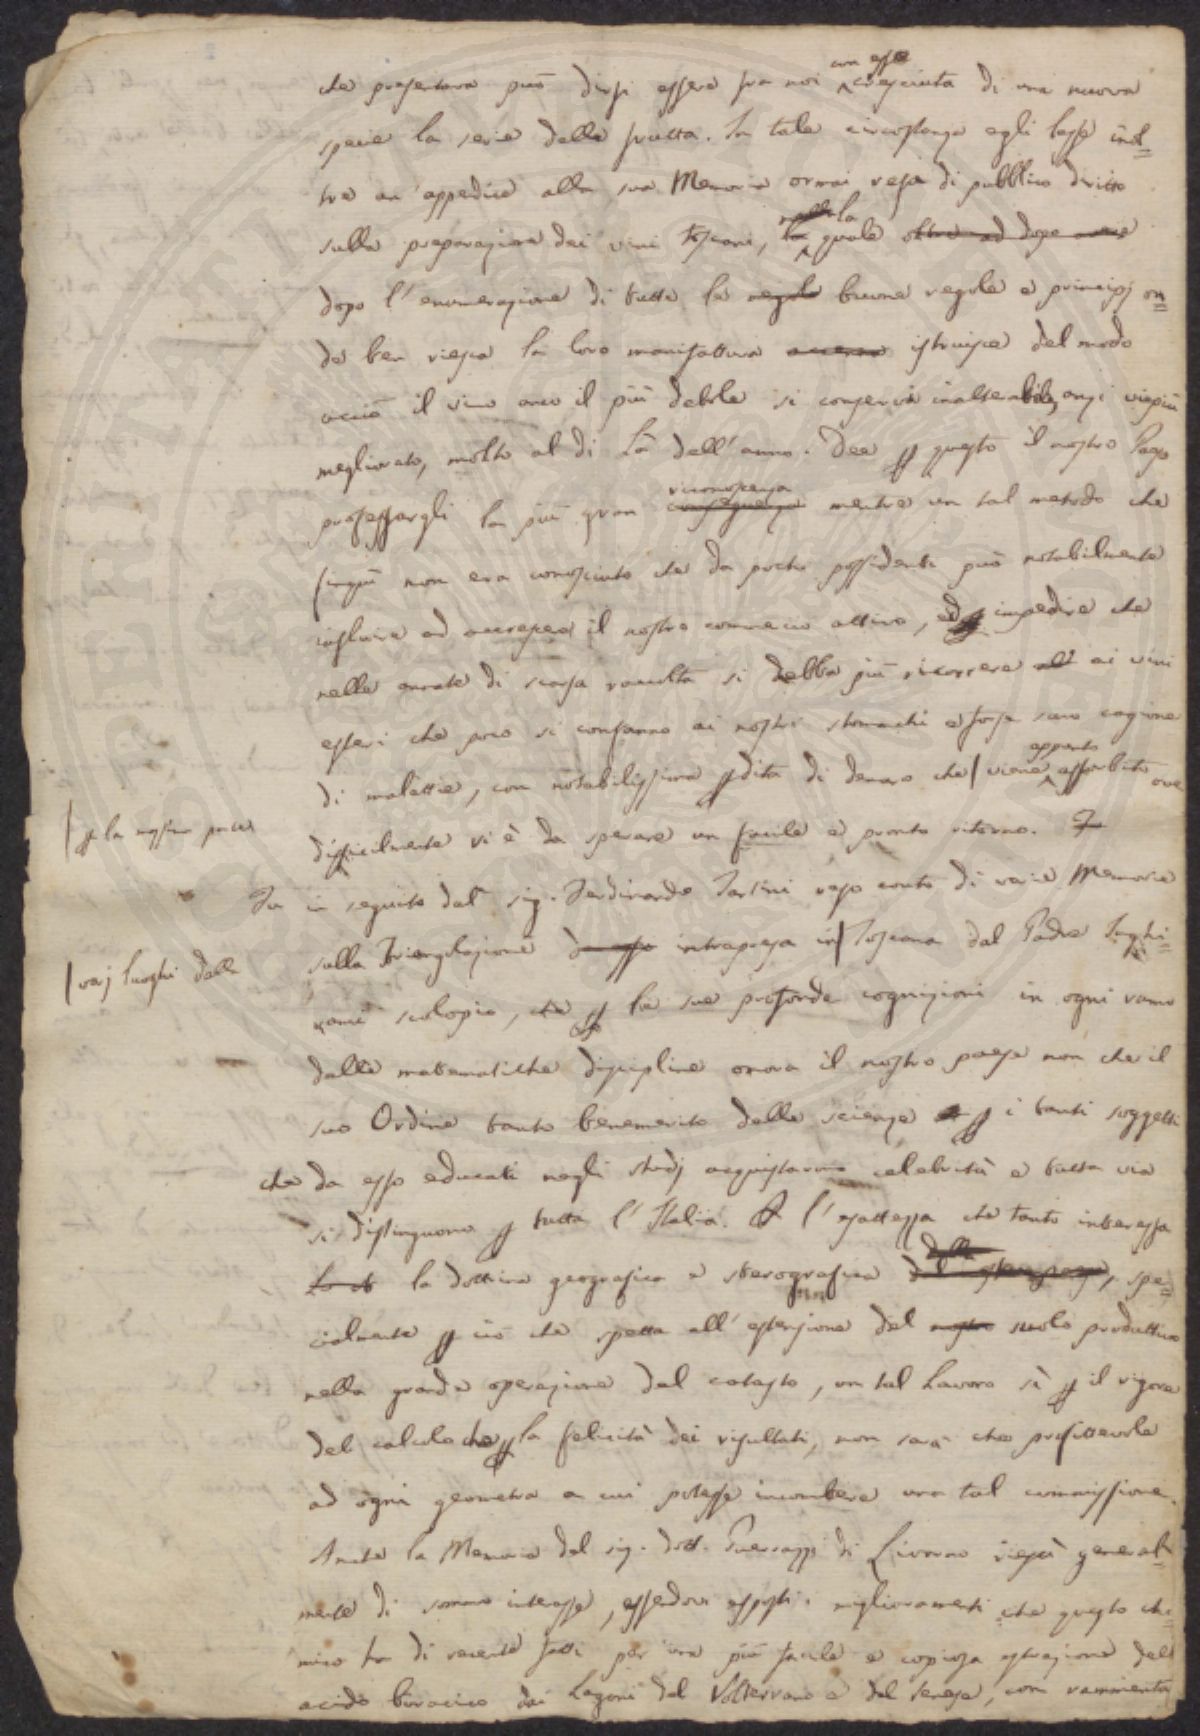 che presentava può dirsi essere fra noi con esse cresciuta di una nuova
specie la serie delle frutta. In tale circostanza egli lesse inol=
tre un'appendice alla sua Memoria ormai resa di pubblico diritto
sulla preparazione dei vini toscani, nella la quale oltre ad dopo avere
dopo l'enumerazione di tutte le regole buone regole e principj on=
de ben riesca la loro manifattura accenna istruisce del modo
acciò il vino anco il più debole si conservi inalterabile, anzi viepiù
megliorato, molto al di là dell'anno. Dee p questo il nostro Paese
professargli la più gran conseguenza riconoscenza mentre un tal metodo che
finquì non era conosciuto che da pochi possidenti può notabilmente
influire ad accrescere il nostro commercio attivo, ed impedire che
nelle annate di scarsa raccolta si debba più ricorrere ai vini
esteri che poco si confanno ai nostri stomachi e forse sono cagione
di malattie, con notabilissima pdita di denaro che | viene appunto assorbito ove
| p la massima parte
difficilmente vi è da sperare un facile e pronto ritorno.
Fu in seguito dal sig. Ferdinando Tartini reso conto di varie Memorie
sulla Triangolazione intrapresa in | Toscana dal Padre Inghi=
| varj luoghi della
rami scolopio, che p le sue profonde cognizioni in ogni ramo
delle matematiche discipline onora il nostro paese non che il
suo Ordine tanto benemerito delle scienze p i tanti soggetti
che da esso educati negli studj acquistarono celebrità e tutta via
si distinguono p tutta l'Italia. A l'esattezza che tanto interessa
la dottrina geografica e sterografica della, spe=
cialmente p ciò che spetta all'estensione del nostro suolo produttivo
nella grande operazione del catasto, un tal lavoro sì p il rigore
del calcolo che p la felicità dei risultati, non sarà che profittevole
ad ogni geometra a cui potesse incombere una tal commissione.
Anche la Memoria del sig. dott. Guerrazzi di Livorno riescì general=
mente di sommo interesse, essendovi esposti i miglioramenti che questo chi=
mico ha di recente fatti per una più facile e copiosa estrazione dell'
acido boracico dai Lagoni del Volterrano e del Senese, con rammentar